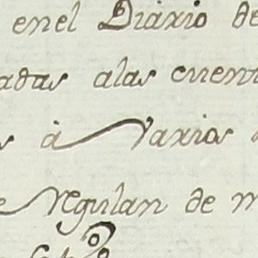 enel Diario de
adas alas cuent
s à Varios
e Regulan de m